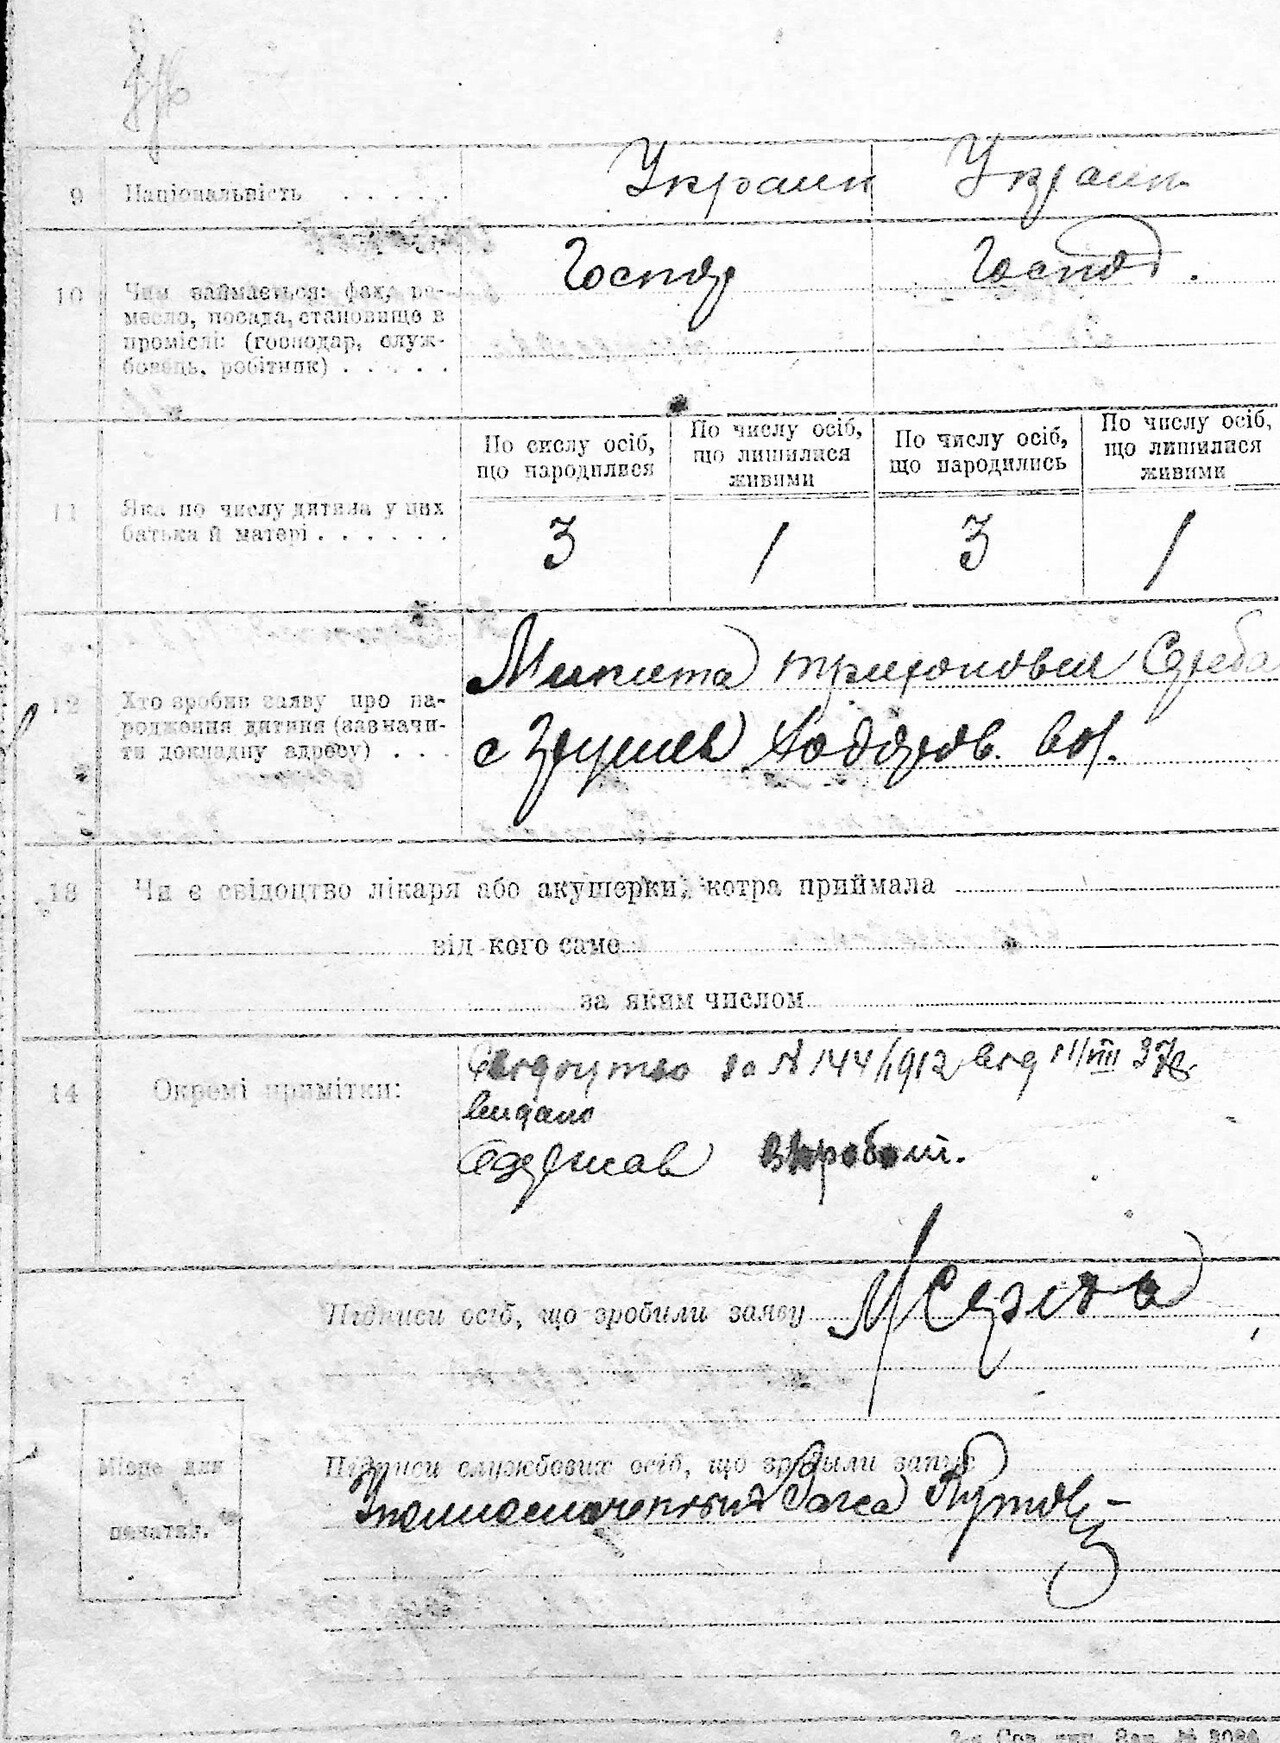 9 Національність . . . . . Украин Украин
10 Чим займається: фах, ре-
месло, посада, становище в
промислі: (господар, служ-
бовець, робітник) . . . . .
Господ Господ.
По числу осіб, що народилися
По числу осіб, що лишилися живими
По числу осіб, що народились
По числу осіб, що лишилися живими
11 Яка по числу дитина у цих
батька й матері . . . . . .
3 1 3 1
12 Хто зробив заяву про на-
родження дитини (зазначи-
ти докладну адресу) . . .
Микита Трихонович
с
13 Чи є свідоцтво лікаря або акушерки, котра приймала
від кого саме
за яким числом
14 Окремі примітки:
Свідоцтво за № 144/1912 від 11/VIII 37р.
видано
Одержав
Підписи осіб, що зробили заяву
Підписи службових осіб, що зробили запис
Загса
Місце для
печатки.